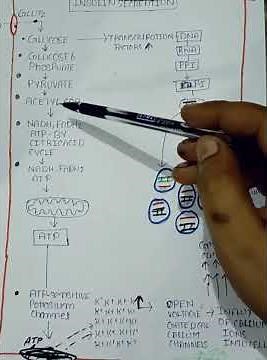 INSULIN SECRETION
GLUT2
GLUCOSE
TRANSCRIPTION
FACTORS
DNA
RNA
PPI
PI
GLUCOSE 6
PHOSPHATE
PYRUVATE
ACETYL COA
NADH, FADH2
ATP-BY
CITRIC ACID
CYCLE
NADH, FADH2
ATP
ATP
ATP-SENSITIVE
POTASSIUM
CHANNEL
K+ K+ K+ K+
K+ K+ K+ K+
K+ K+ K+ K+
K+ K+ K+ K+
OPEN
VOLTAGE
GATED CA2
CALCIUM
CHANNELS
INFLUX
OF CALCIUM
IONS
ATP